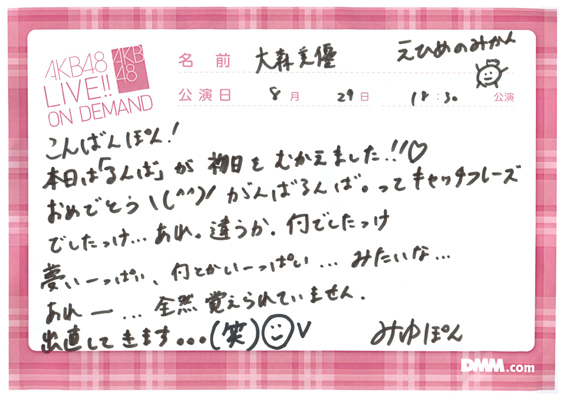 AKB48
LIVE!!
ON DEMAND
AKB
48
名前 大森美優 えひめのみかん
公演日 8月 29日 18:30 公演
こんばんぽん!
本日は「るんば」が 初日を むかえました!!♡
おめでとう\(^^)/ がんばるんば。ってキャッチフレーズ
でしたっけ... あれ。違うか。何でしたっけ
夢いーっぱい、何とかいーっぱい... みたいな...
あれー... 全然 覚えられていません。
出直してきます...(笑) みゆぽん
DMM.com